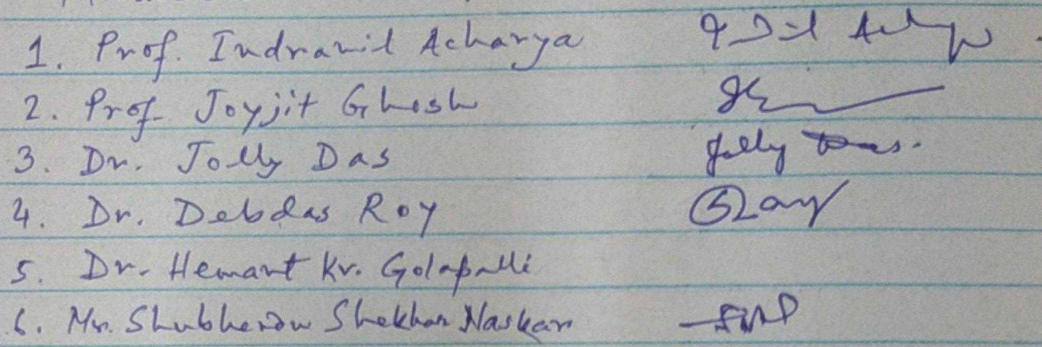 1. Prof. Indranil Acharya
2. Prof. Joyjit Ghosh
3. Dr. Jolly Das Jolly Das.
4. Dr. Debdas Roy
5. Dr. Hemant Kr. Golapalli
6. Mr. Shubhendu Shekhar Naskar